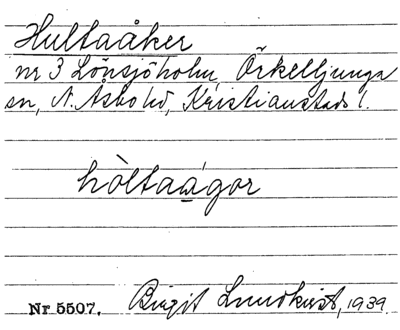 Hultaåker
nr 3 Lönsjöholm, Örkelljunga
sn, N. Åsbo hd, Kristianstads l.
hòltaágor
Nr 5507. Birgit Lundkvist, 1939.